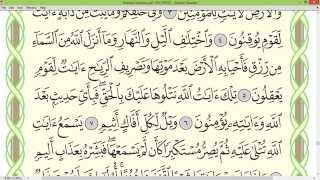 وَٱلْأَرْضِ لَـَٔايَٰتٍ لِّلْمُؤْمِنِينَ ٣ وَفِى خَلْقِكُمْ وَمَا يَبُثُّ مِن دَآبَّةٍ
لِّقَوْمٍ يُوقِنُونَ ٤ وَٱخْتِلَٰفِ ٱلَّيْلِ وَٱلنَّهَارِ وَمَآ أَنزَلَ ٱللَّهُ مِنَ ٱلسَّمَآءِ
مِن رِّزْقٍ فَأَحْيَا بِهِ ٱلْأَرْضَ بَعْدَ مَوْتِهَا وَتَصْرِيفِ ٱلرِّيَٰحِ ءَايَٰتٌ لِّقَوْمٍ
يَعْقِلُونَ ٥ تِلْكَ ءَايَٰتُ ٱللَّهِ نَتْلُوهَا عَلَيْكَ بِٱلْحَقِّ فَبِأَىِّ حَدِيثٍۭ بَعْدَ
ٱللَّهِ وَءَايَٰتِهِۦ يُؤْمِنُونَ ٦ وَيْلٌ لِّكُلِّ أَفَّاكٍ أَثِيمٍ ٧ يَسْمَعُ ءَايَٰتِ
ٱللَّهِ تُتْلَىٰ عَلَيْهِ ثُمَّ يُصِرُّ مُسْتَكْبِرًا كَأَن لَّمْ يَسْمَعْهَا فَبَشِّرْهُ بِعَذَابٍ أَلِيمٍ